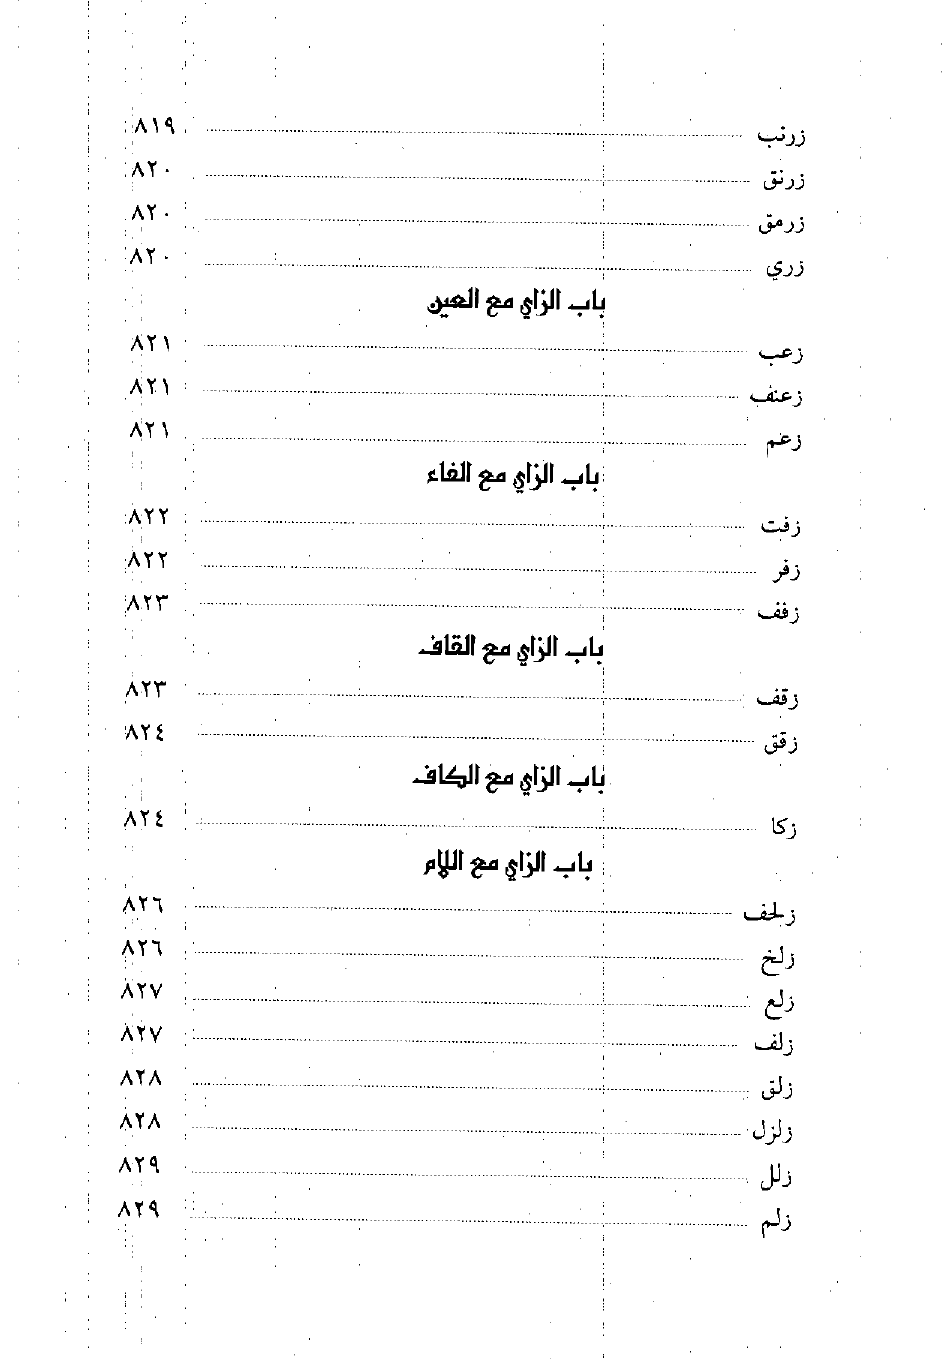 زرنب ٨١٩
زرنق ٨٢٠
زرمق ٨٢٠
زري ٨٢٠
باب الزاي مع العين
زعب ٨٢١
زعنف ٨٢١
زعم ٨٢١
باب الزاي مع الفاء
زفت ٨٢٢
زفر ٨٢٢
زفف ٨٢٣
باب الزاي مع القاف
زقف ٨٢٣
زقق ٨٢٤
باب الزاي مع الكاف
زكا ٨٢٤
باب الزاي مع اللام
زلحف ٨٢٦
زلخ ٨٢٦
زلع ٨٢٧
زلف ٨٢٧
زلق ٨٢٨
زلزل ٨٢٨
زلل ٨٢٩
زلم ٨٢٩